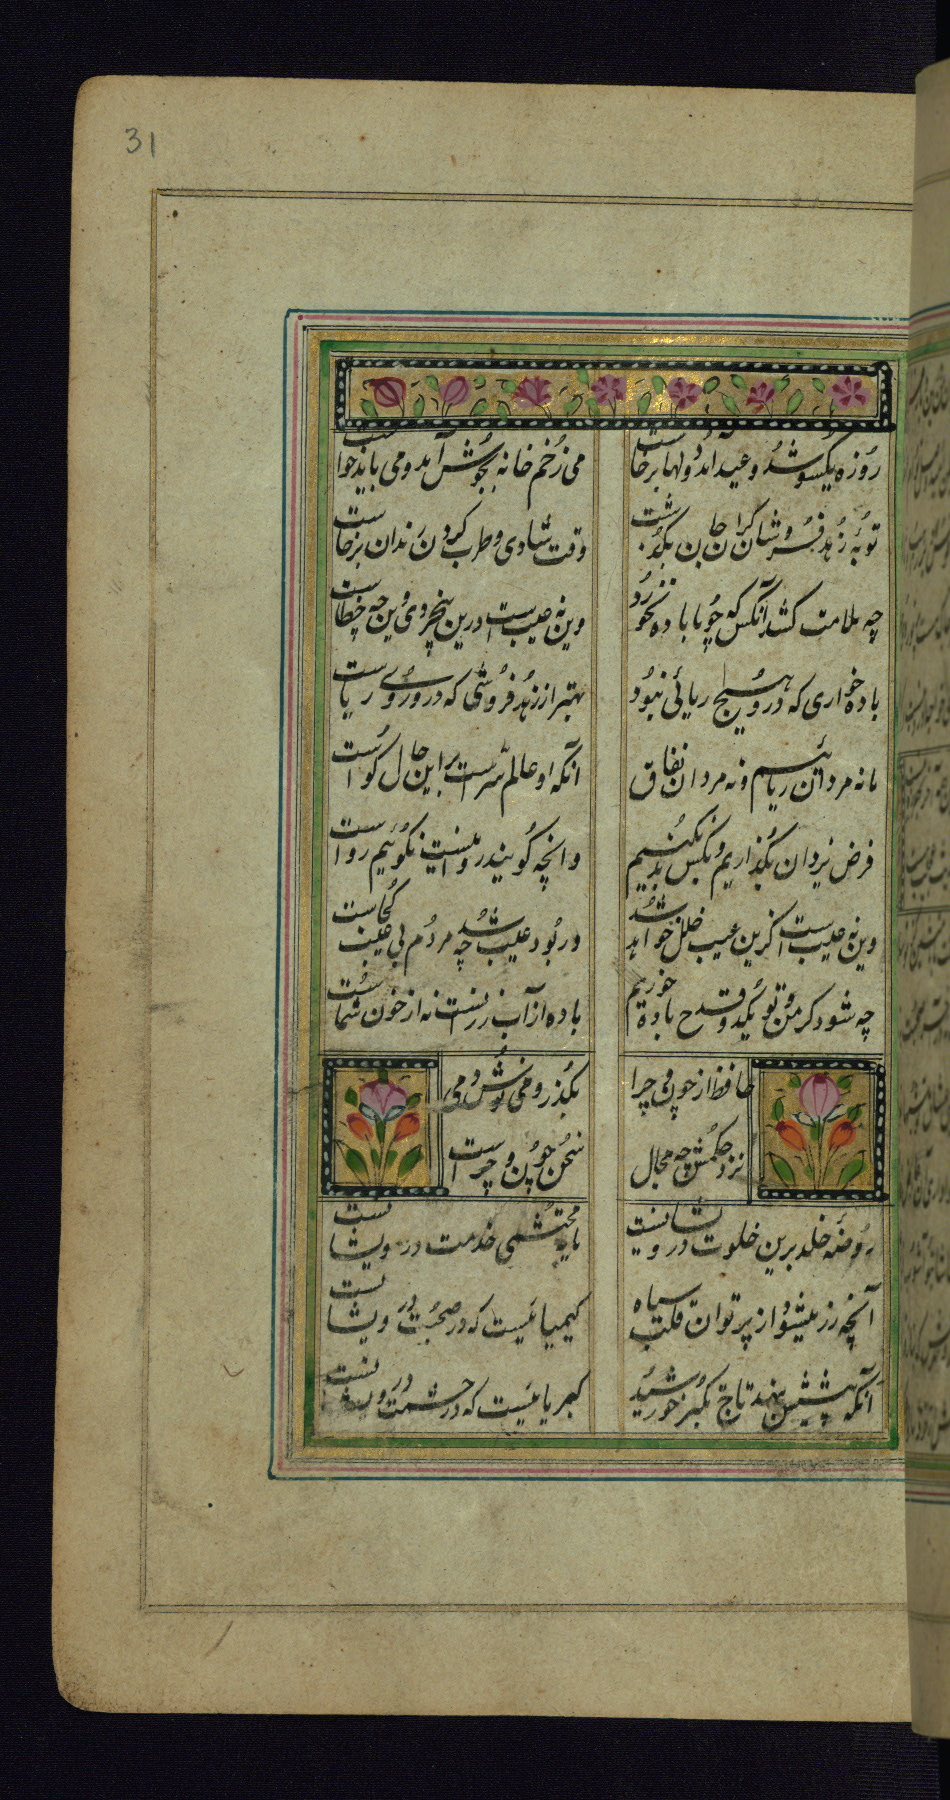 31
روزه یکسو شد و عید آمد و دلها برخاست
می ز خمخانه بجوش آمد و می باید خواست
توبهٔ زهد فروشان گران جان بگذشت
وقت شادی و طرب کردن رندان برخاست
چه ملامت کشد آنکس که چو ما باده خورد
وین نه عیبست درین بیخردی وین چه خطاست
باده خواری که درو هیچ ریائی نبود
بهتر از زهد فروشی که درو روی ریاست
ما نه مردان ریائیم و نه مردان نفاق
آنکه او عالم سرست برین حال گواست
فرض یزدان بگذاریم و بکس بد نکنیم
وانچه گویند روا نیست نگوئیم رواست
وین نه عیبست کزین عیب خلل خواهد شد
ور بود عیب چه شد مردم بی عیب کجاست
چه شود گر من و تو یکدو قدح باده خوریم
باده از آب رزانست نه از خون شماست
حافظ از چون و چرا
بگذر و می نوش و می
نزد حکمش چه مجال
سخن چون و چراست
روضهٔ خلد برین خلوت درویشانست
مایه محتشمی خدمت درویشانست
آنچه زر میشود از پرتو آن قلب سیاه
کیمیائیست که در صحبت درویشانست
آنکه پیشش بنهد تاج تکبر خورشید
کبریائیست که در حشمت درویشانست